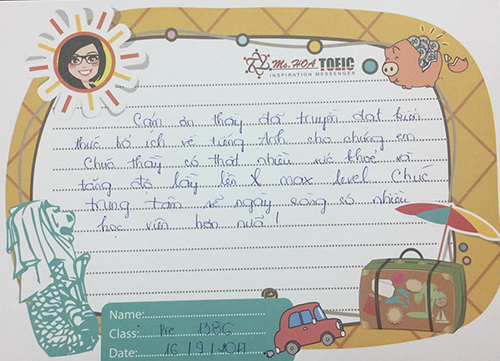 Ms.HOA TOEIC
INSPIRATION MESSENGER
Cảm ơn thầy đã truyền đạt kiến
thức bổ ích về tiếng Anh cho chúng em
Chúc thầy có thật nhiều sức khoẻ và
tăng độ lầy lên max level Chúc
trung tâm sẽ ngày càng có nhiều
học viên hơn nữa!
Name:
Class: Pre 1386
Date: 16/9/2017